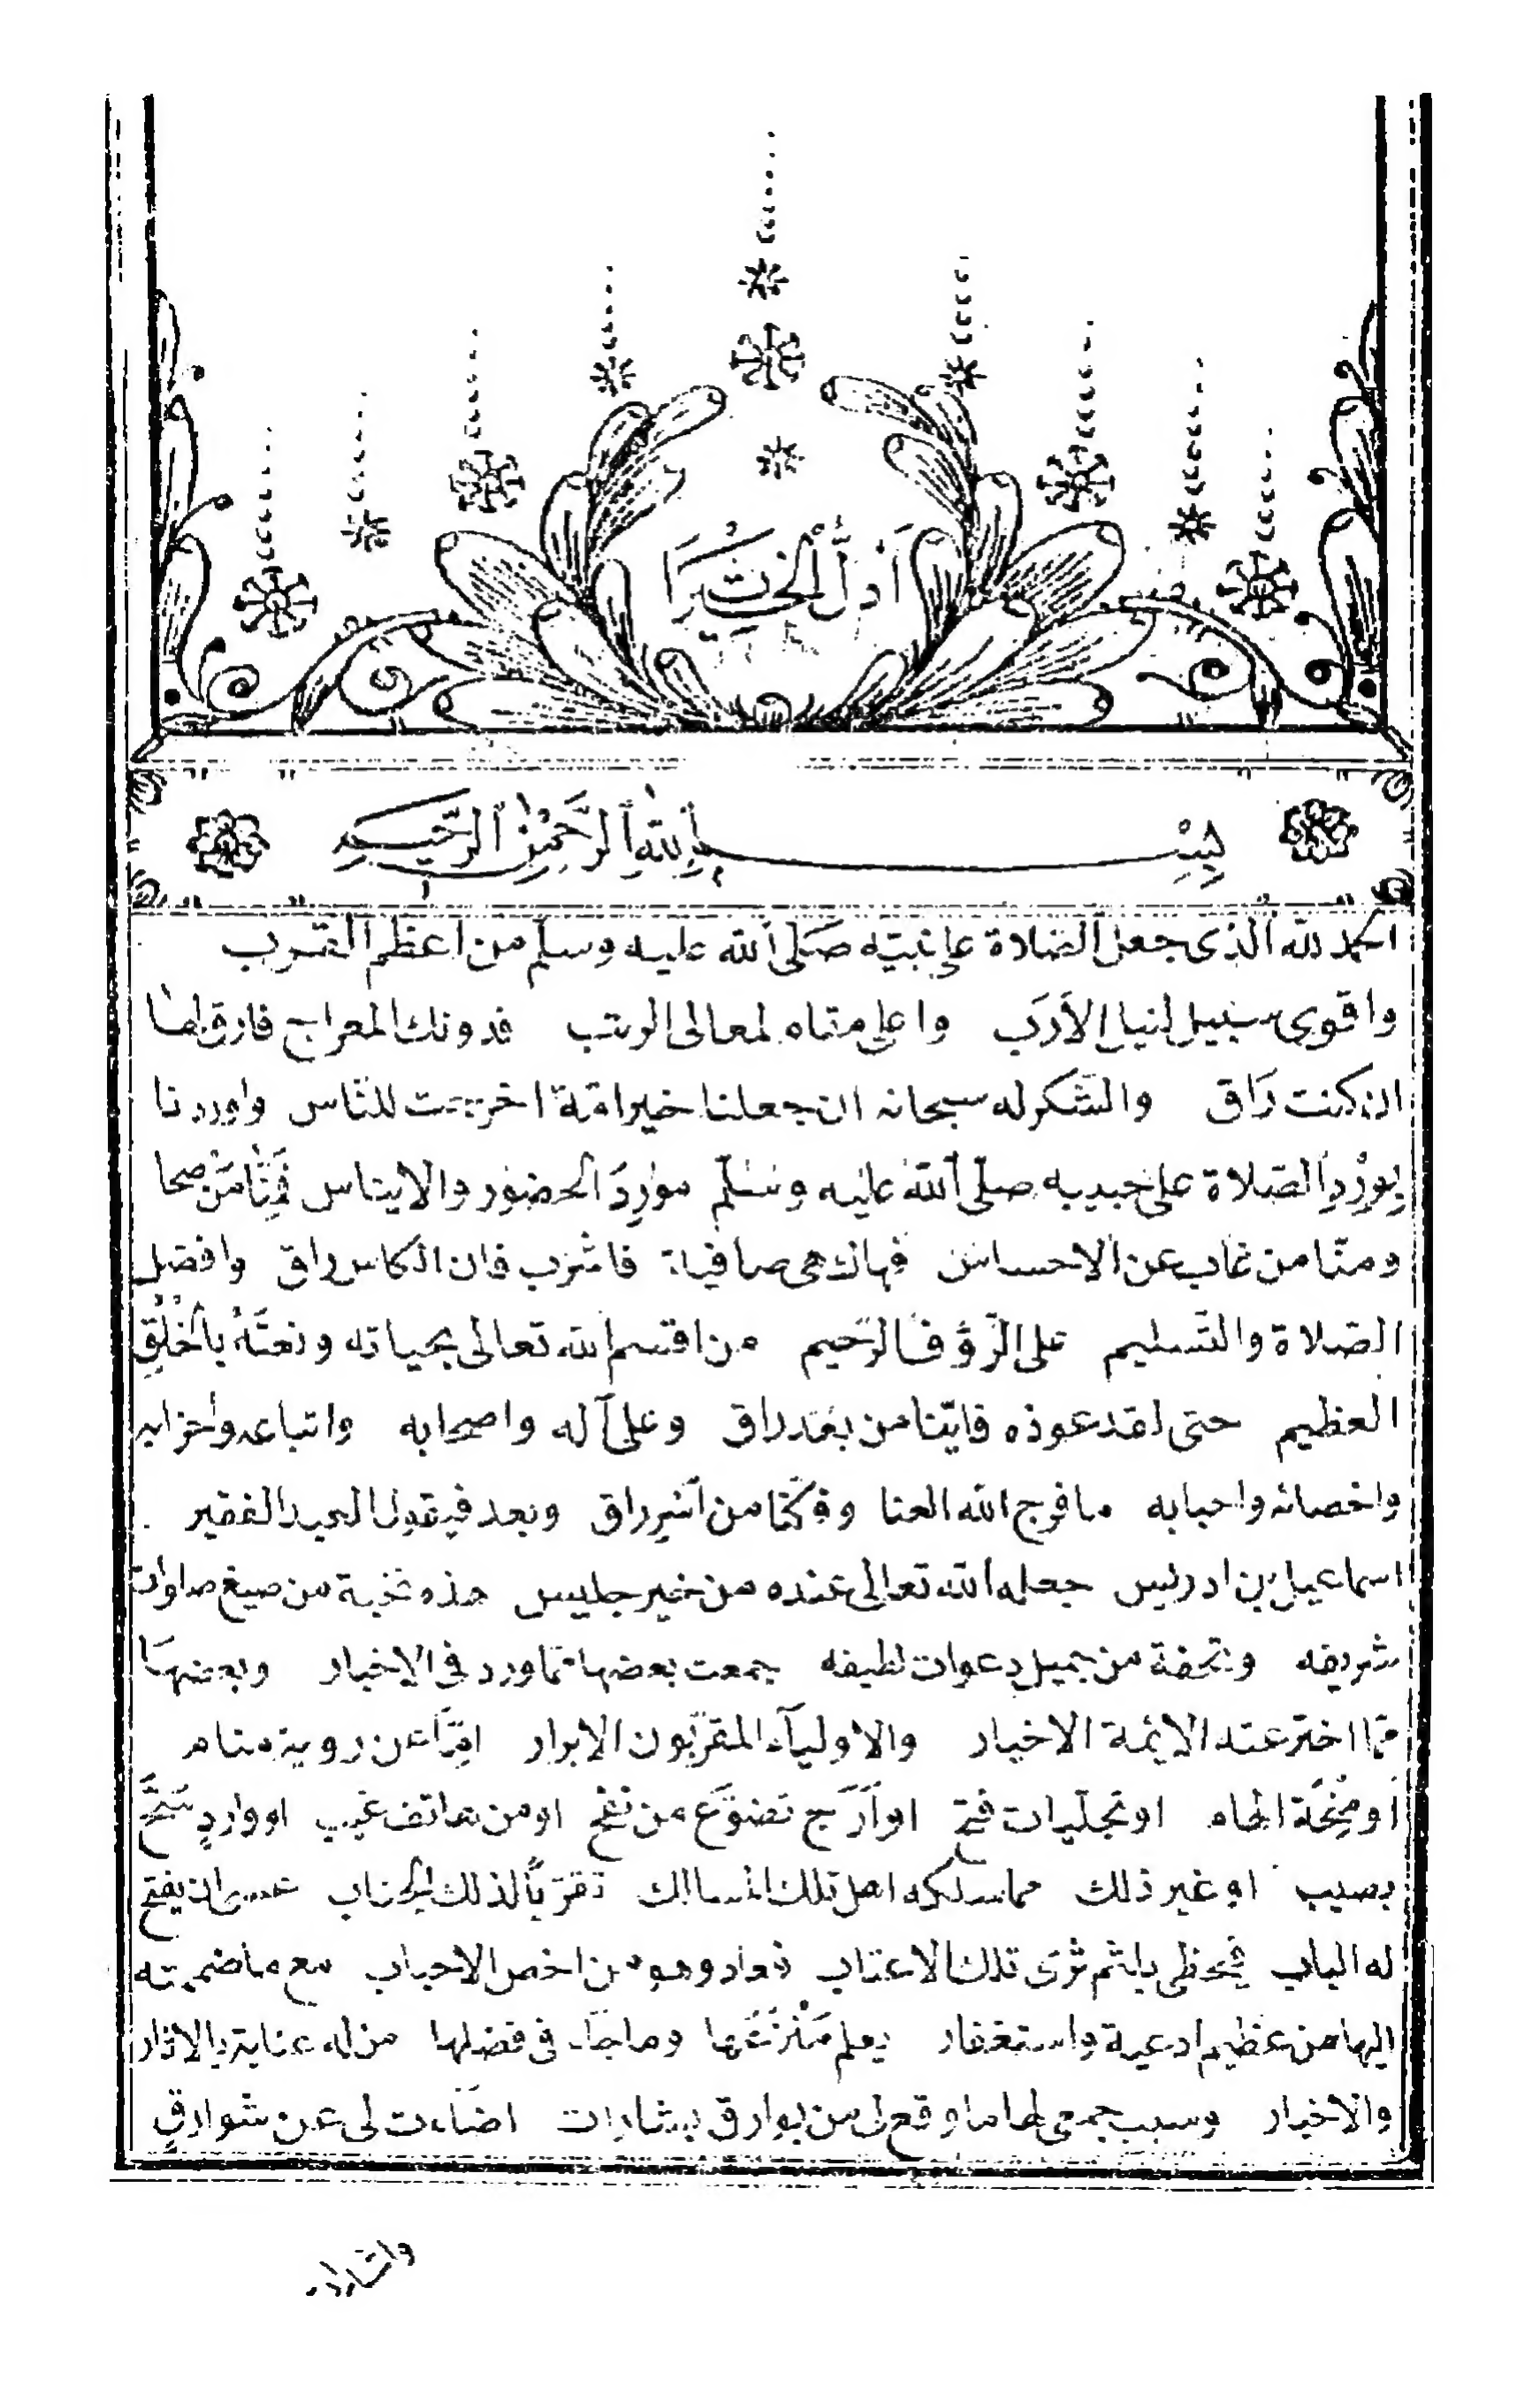 أول الخيرات
بسم الله الرحمن الرحيم
الحمد لله الذى جعل الصلاة على نبيّه صَلى الله عليه وسلم من اعظم القرب
واقوى سبيل لنيل الأرَب واعلى مقام لمعالى الرتب فدونك المعراج فارق لها
ان كنت رَاق والشكر له سبحانه ان جعلنا خير امّة اخرجت للنّاس واوردنا
بِوِرْدِ الصّلاة على حبيبه صلّى الله عليه وسلّم موارِدَ الحضور والايناس فَمِنَّا مَنْ صحا
ومنّا من غاب عن الاحساس فهاك هى صافية فاشرب فان الكاس راق وافضل
الصّلاة والتّسليم على الرّؤف الرّحيم من اقسم الله تعالى بحياته ونعتَهُ بالخُلُقِ
العظيم حتى لقد عوذه فايّنا من بعد راق وعلى آله واصحابه واتباعه واحزابه
واخصائه واحبابه ما فرج الله العنا وفكّنا من اسر راق وبعد فيقول العبد الفقير
اسماعيل بن ادريس جعله الله تعالى عنده من خير جليس هذه نخبة من صيغ صلوات
شريفه وتحفة من جميل دعوات لطيفه جمعت بعضها ممّا ورد فى الاخبار وبعضها
ممّا اخترعته الائمة الاخيار والاوليآء المقرّبون الابرار امّا عن روية منام
أو مِنْحَة الهام او تجلّيات فتح او آرَج تضوّع من نفح او من هاتف غيب او واردٍ سَحَّ
بصيب او غير ذلك مما سلكه اهل تلك المسالك تقرّبًا لذلك الجناب عسى ان يفتح
له الباب فيحظى بلثم ثرى تلك الاعتاب فعاد وهو من اخص الاحباب مع ما ضممته
اليها من عظيم ادعية واستغفار يعلم مَنْزِلَتَها وما جاء فى فضلها من له عناية بالاثار
والاخبار وسبب جمعى لها ما وقع لى من بوارق بشارات اضاءت لى عن شوارق